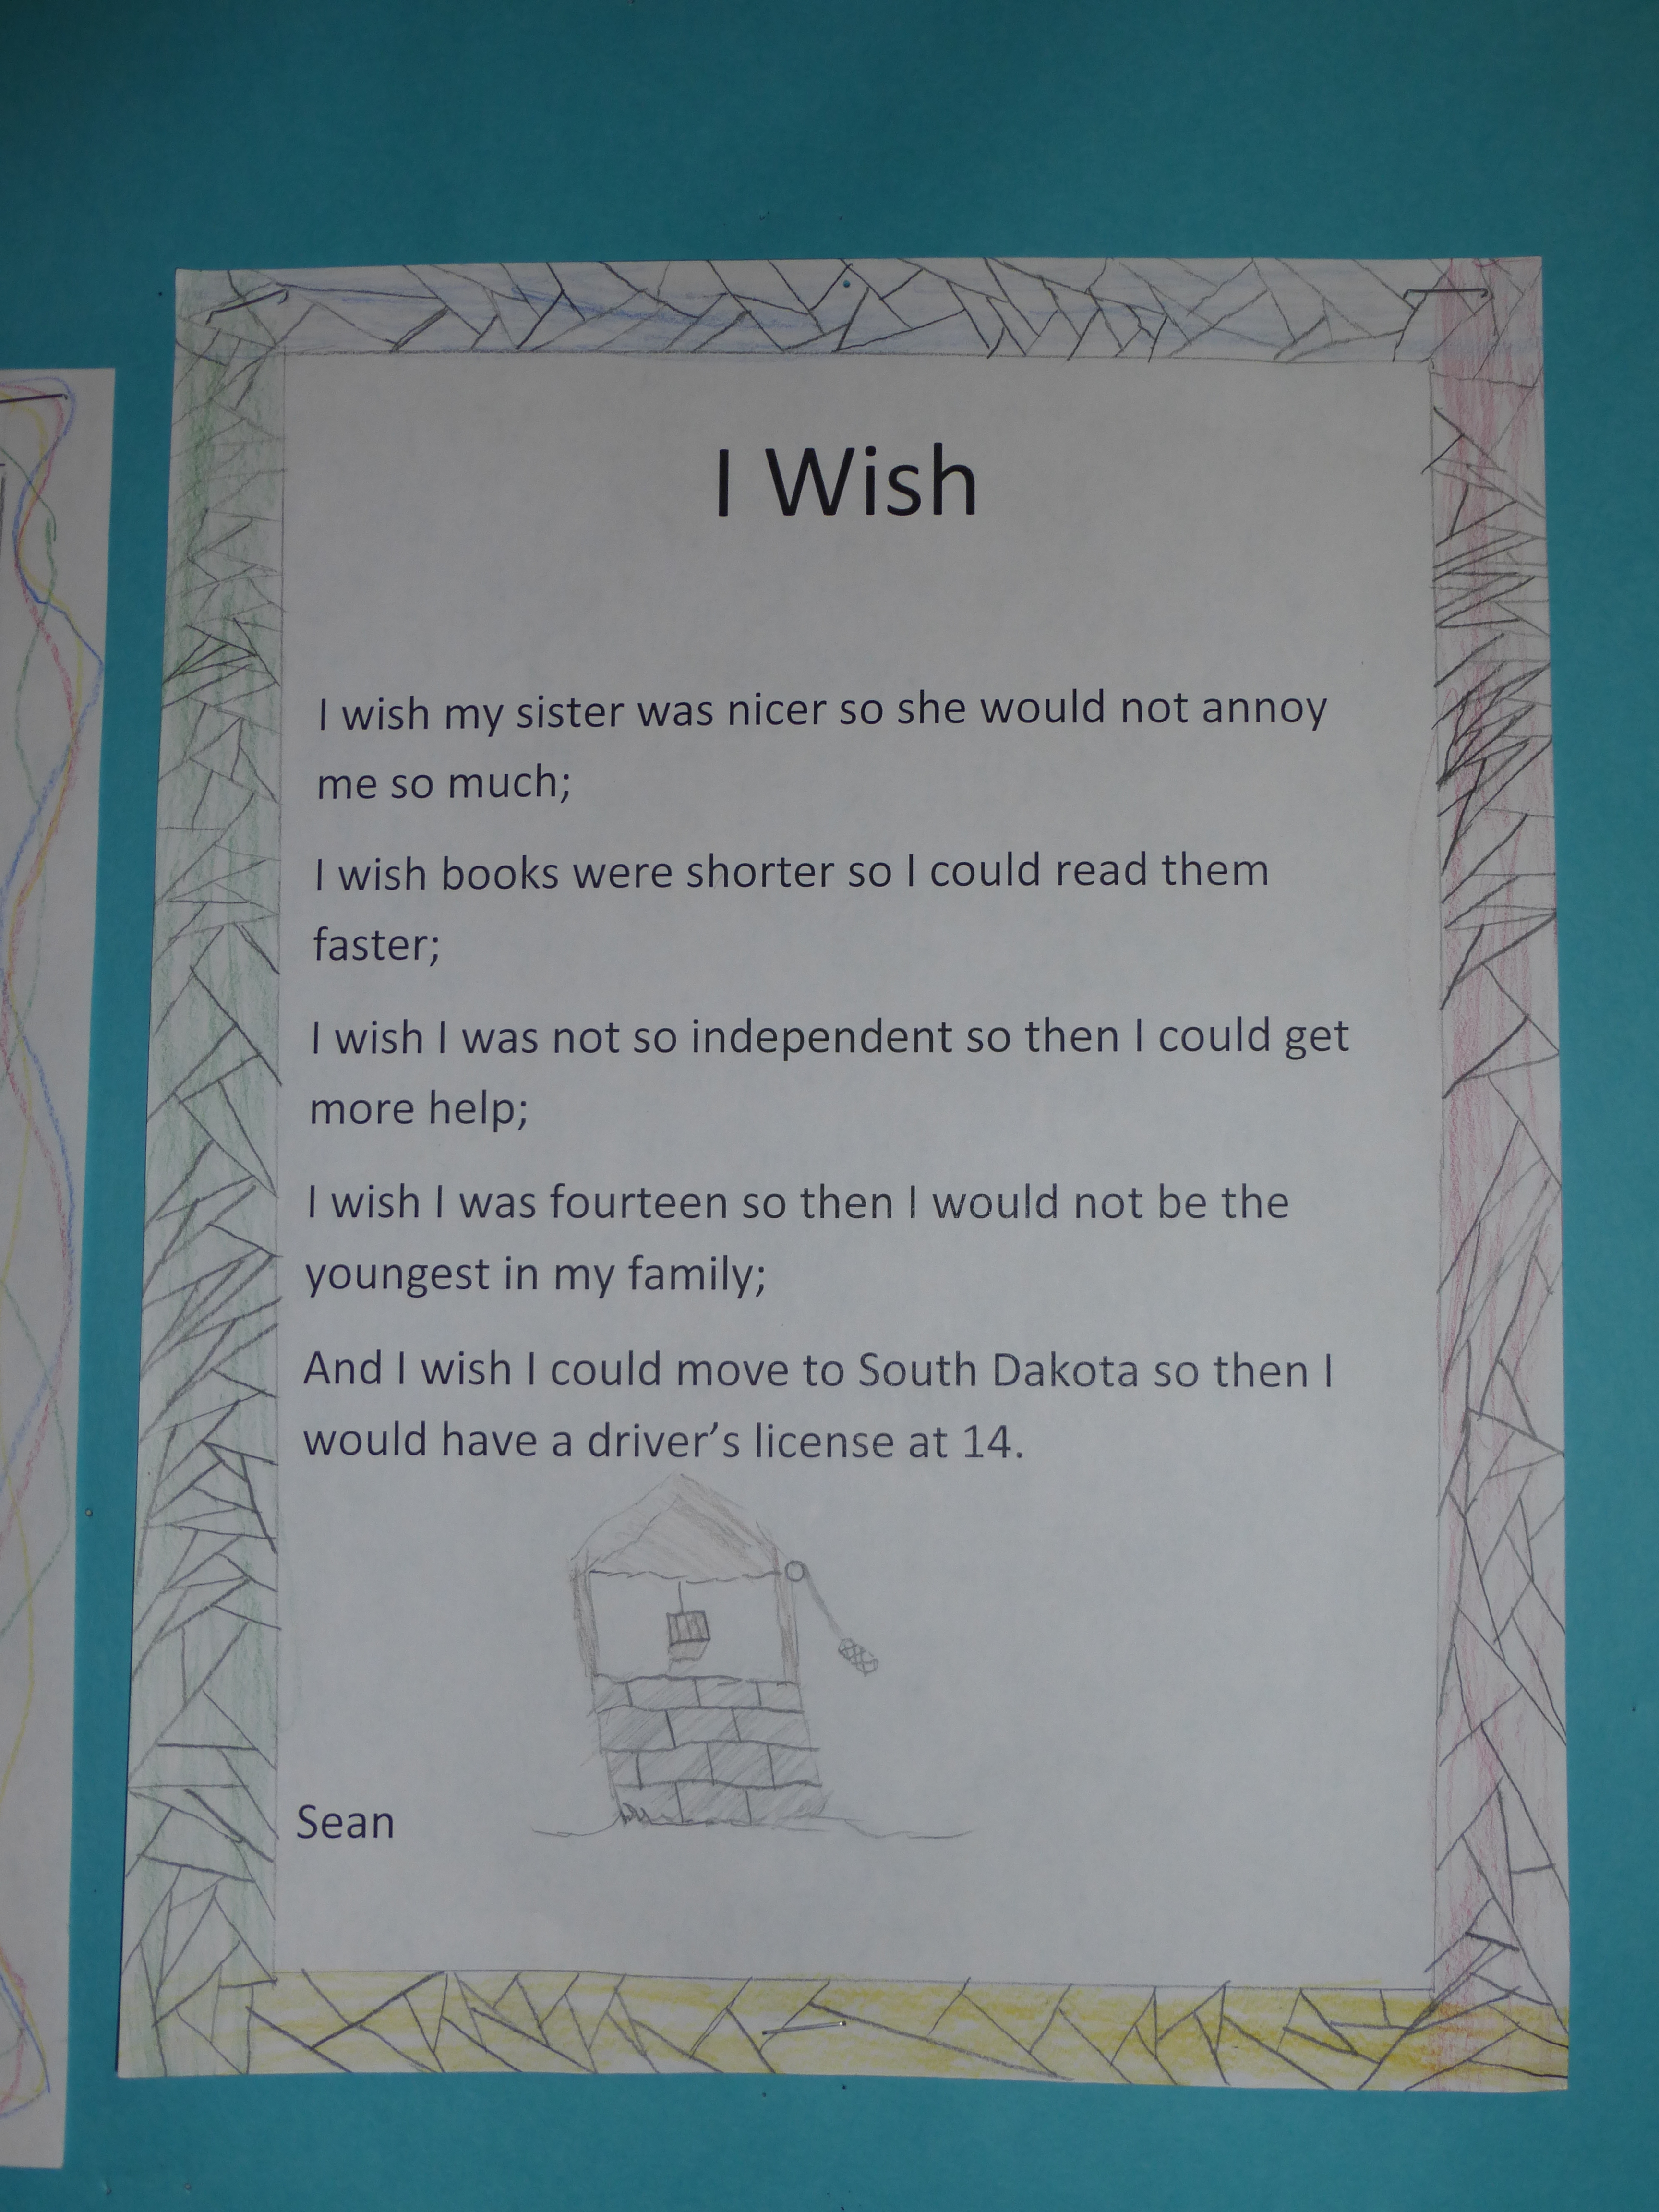 I Wish
I wish my sister was nicer so she would not annoy
me so much;
I wish books were shorter so I could read them
faster;
I wish I was not so independent so then I could get
more help;
I wish I was fourteen so then I would not be the
youngest in my family;
And I wish I could move to South Dakota so then I
would have a driver’s license at 14.
Sean